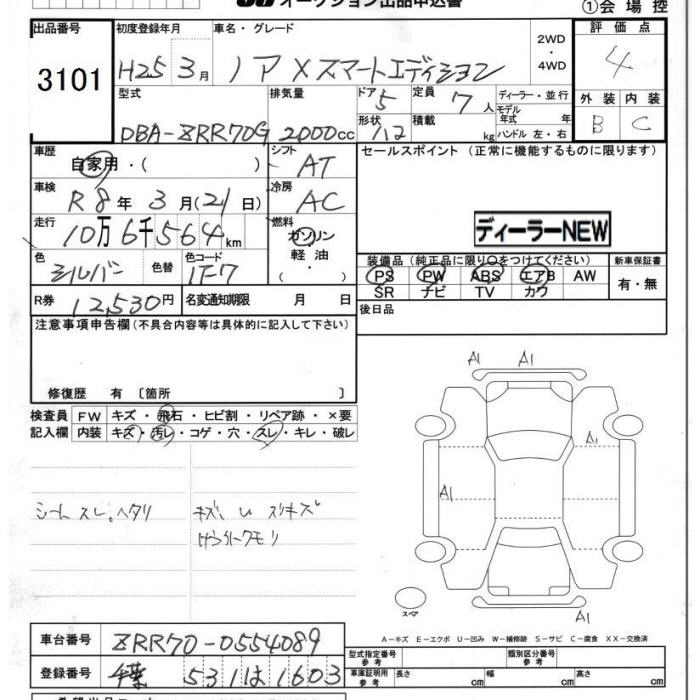 オークション出品申込書
①会場控
出品番号
3101
初度登録年月
H25 3月
車名・グレード
ノア Xスマートエディション
2WD
・
4WD
評価点
4
外装 内装
B C
型式
DBA-ZRR70G
排気量
2000cc
ドア 5
形状 ハコ
定員 7人
積載 kg
ディーラー・並行
モデル年式 年
ハンドル 左・右
車歴
自家用・( )
シフト
AT
車検
R8年 3月(21日)
冷房
AC
走行
10万6千564km
燃料
ガソリン
軽油
・( )
色
シルバー
色替
色コード
1F7
R券 12,530円
名変通知期限 月 日
セールスポイント (正常に機能するものに限ります)
ディーラーNEW
装備品(純正品に限り○をつけてください)
PS PW ABS エアB AW
SR ナビ TV カワ
新車保証書
有・無
後日品
注意事項申告欄(不具合内容等は具体的に記入して下さい)
修復歴 有 〔箇所 〕
検査員記入欄
FW キズ・飛石・ヒビ割・リペア跡・×要
内装 キズ・汚レ・コゲ・穴・スレ・キレ・破レ
シートスレ。ヘタリ
キズ、U スリキズ
A1 A1
A1
A1
A1
スペア
A-キズ E-エクボ U-凹み W-補修跡 S-サビ C-腐食 XX-交換済
車台番号 ZRR70-0554089
登録番号 千葉 531は1603
型式指定番号 参考
類別区分番号 参考
車庫証明用 参考
長さ cm 幅 cm 高さ cm